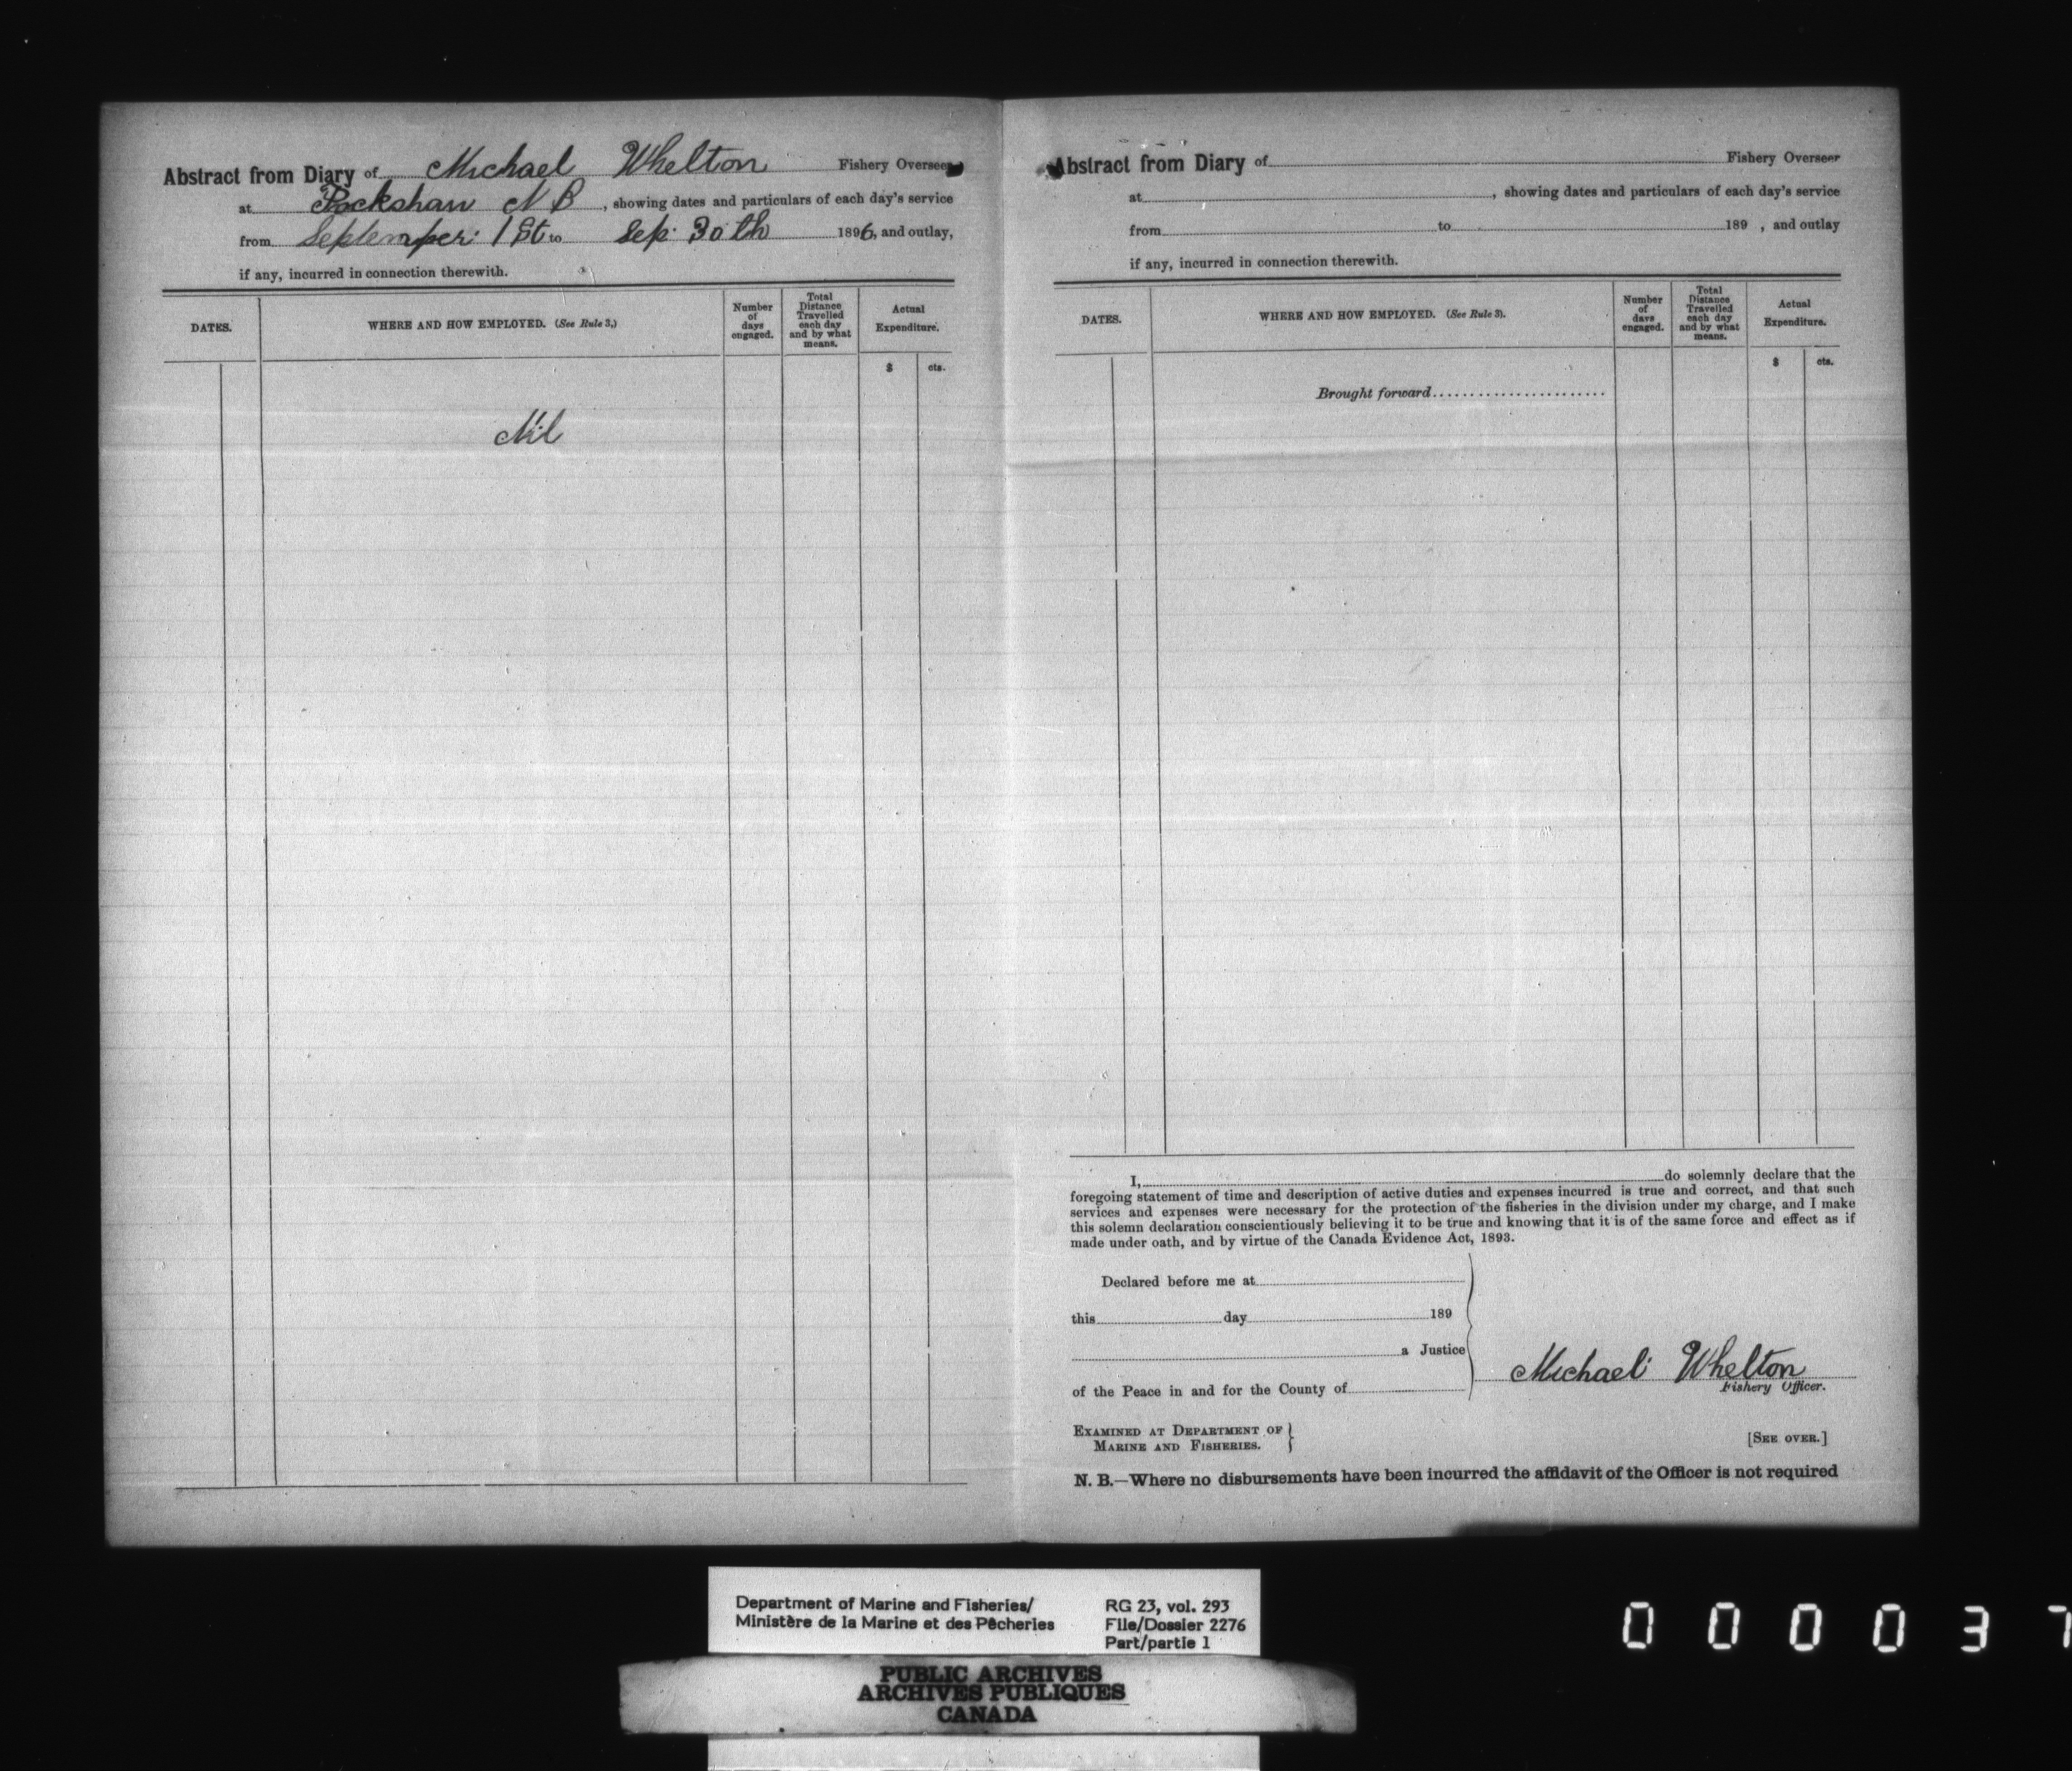 Abstract from Diary of Michael Whelton Fishery Overseer
at Pockshaw N B, showing dates and particulars of each day's service
from September 1 St to Sep. 30th 1896, and outlay,
if any, incurred in connection therewith.
DATES.
WHERE AND HOW EMPLOYED. (See Rule 3,)
Number of days engaged.
Total Distance Travelled each day and by what means.
Actual Expenditure.
$ cts.
Nil
Abstract from Diary of Fishery Overseer
at , showing dates and particulars of each day's service
from to 189 , and outlay
if any, incurred in connection therewith.
DATES.
WHERE AND HOW EMPLOYED. (See Rule 3).
Number of days engaged.
Total Distance Travelled each day and by what means.
Actual Expenditure.
$ cts.
Brought forward
I, do solemnly declare that the
foregoing statement of time and description of active duties and expenses incurred is true and correct, and that such
services and expenses were necessary for the protection of the fisheries in the division under my charge, and I make
this solemn declaration conscientiously believing it to be true and knowing that it is of the same force and effect as if
made under oath, and by virtue of the Canada Evidence Act, 1893.
Declared before me at
this day 189
a Justice
of the Peace in and for the County of
Michael Whelton
Fishery Officer.
EXAMINED AT DEPARTMENT OF
MARINE AND FISHERIES.
[SEE OVER.]
N. B.—Where no disbursements have been incurred the affidavit of the Officer is not required
Department of Marine and Fisheries/
Ministère de la Marine et des Pêcheries
RG 23, vol. 293
File/Dossier 2276
Part/partie 1
PUBLIC ARCHIVES
ARCHIVES PUBLIQUES
CANADA
0 0 0 0 3 7